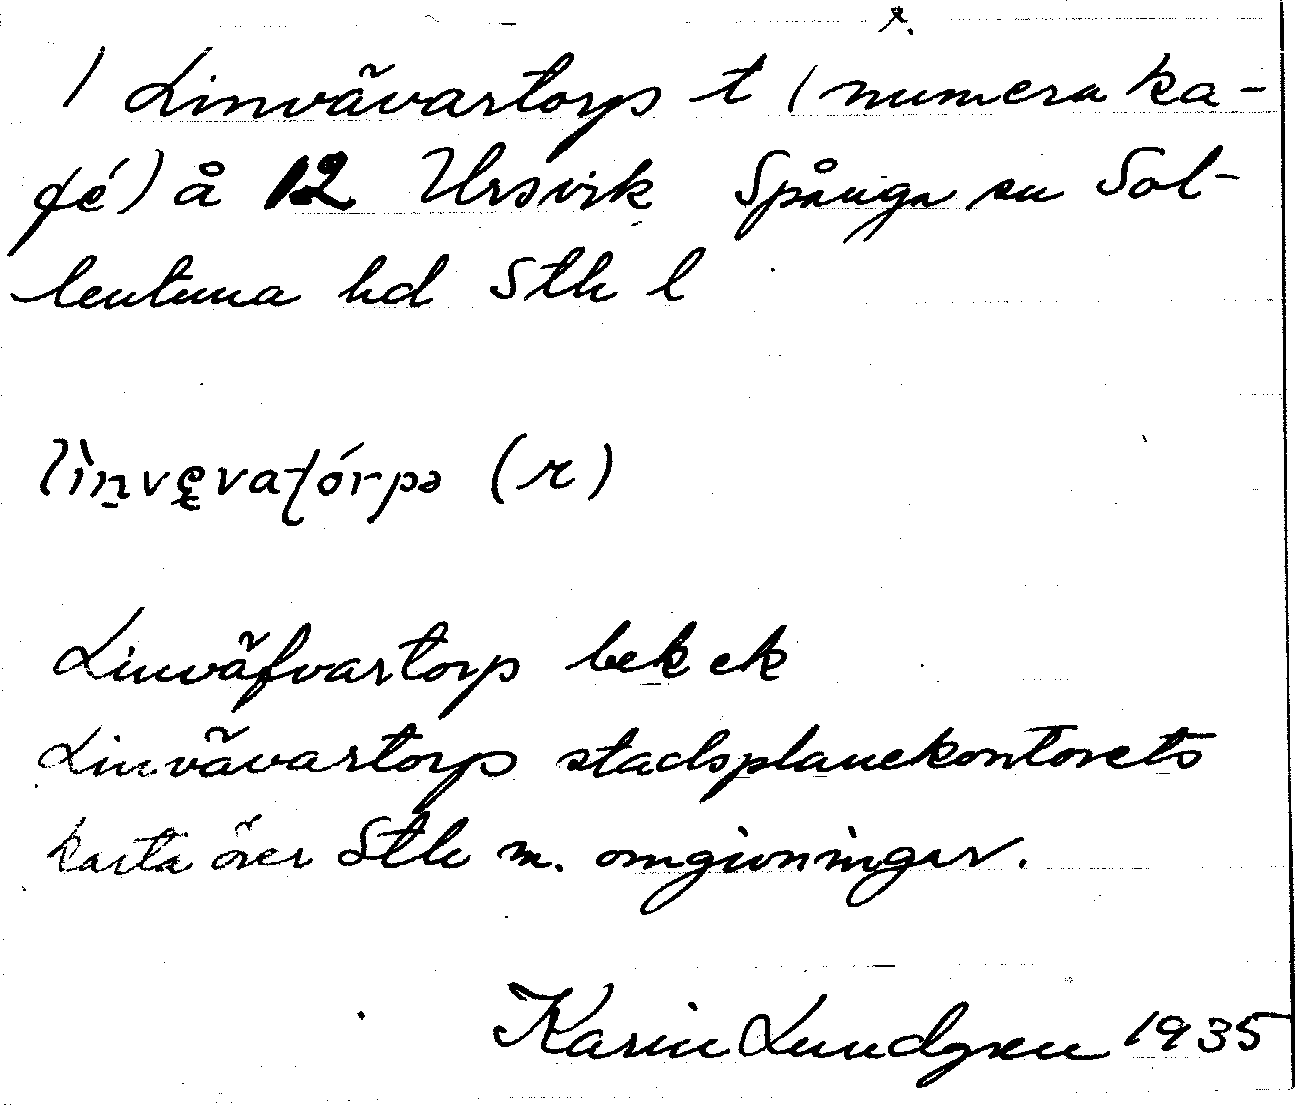 / Linvävartorp t (numera ka-
fé) å 12 Ursvik Spånga sn Sol-
lentuna hd Sth l
lìnvęvaʈórpə (r)
Linväfvartorp bek ek
Linvävartorp stadsplanekontorets
karta över Sth m. omgivningar.
Karin Lundgren 1935